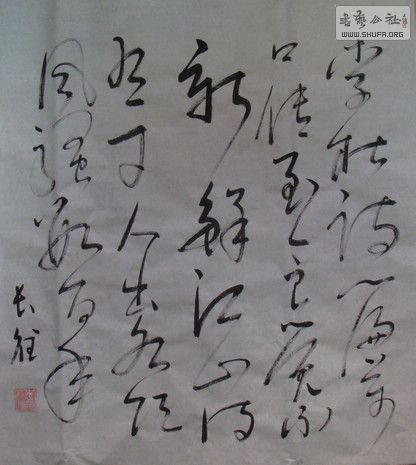 书艺公社
WWW.SHUFA.ORG
李杜诗篇万
口传至今已觉不
新鲜江山代
有才人出各领
风骚数百年
长